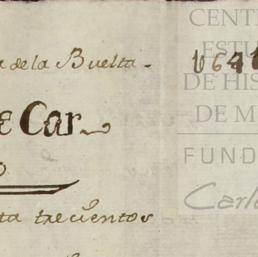 de la Buelta
CENT
ESTU
DE HIS
DE M
E Car
FUND
Carl
ta trecientos